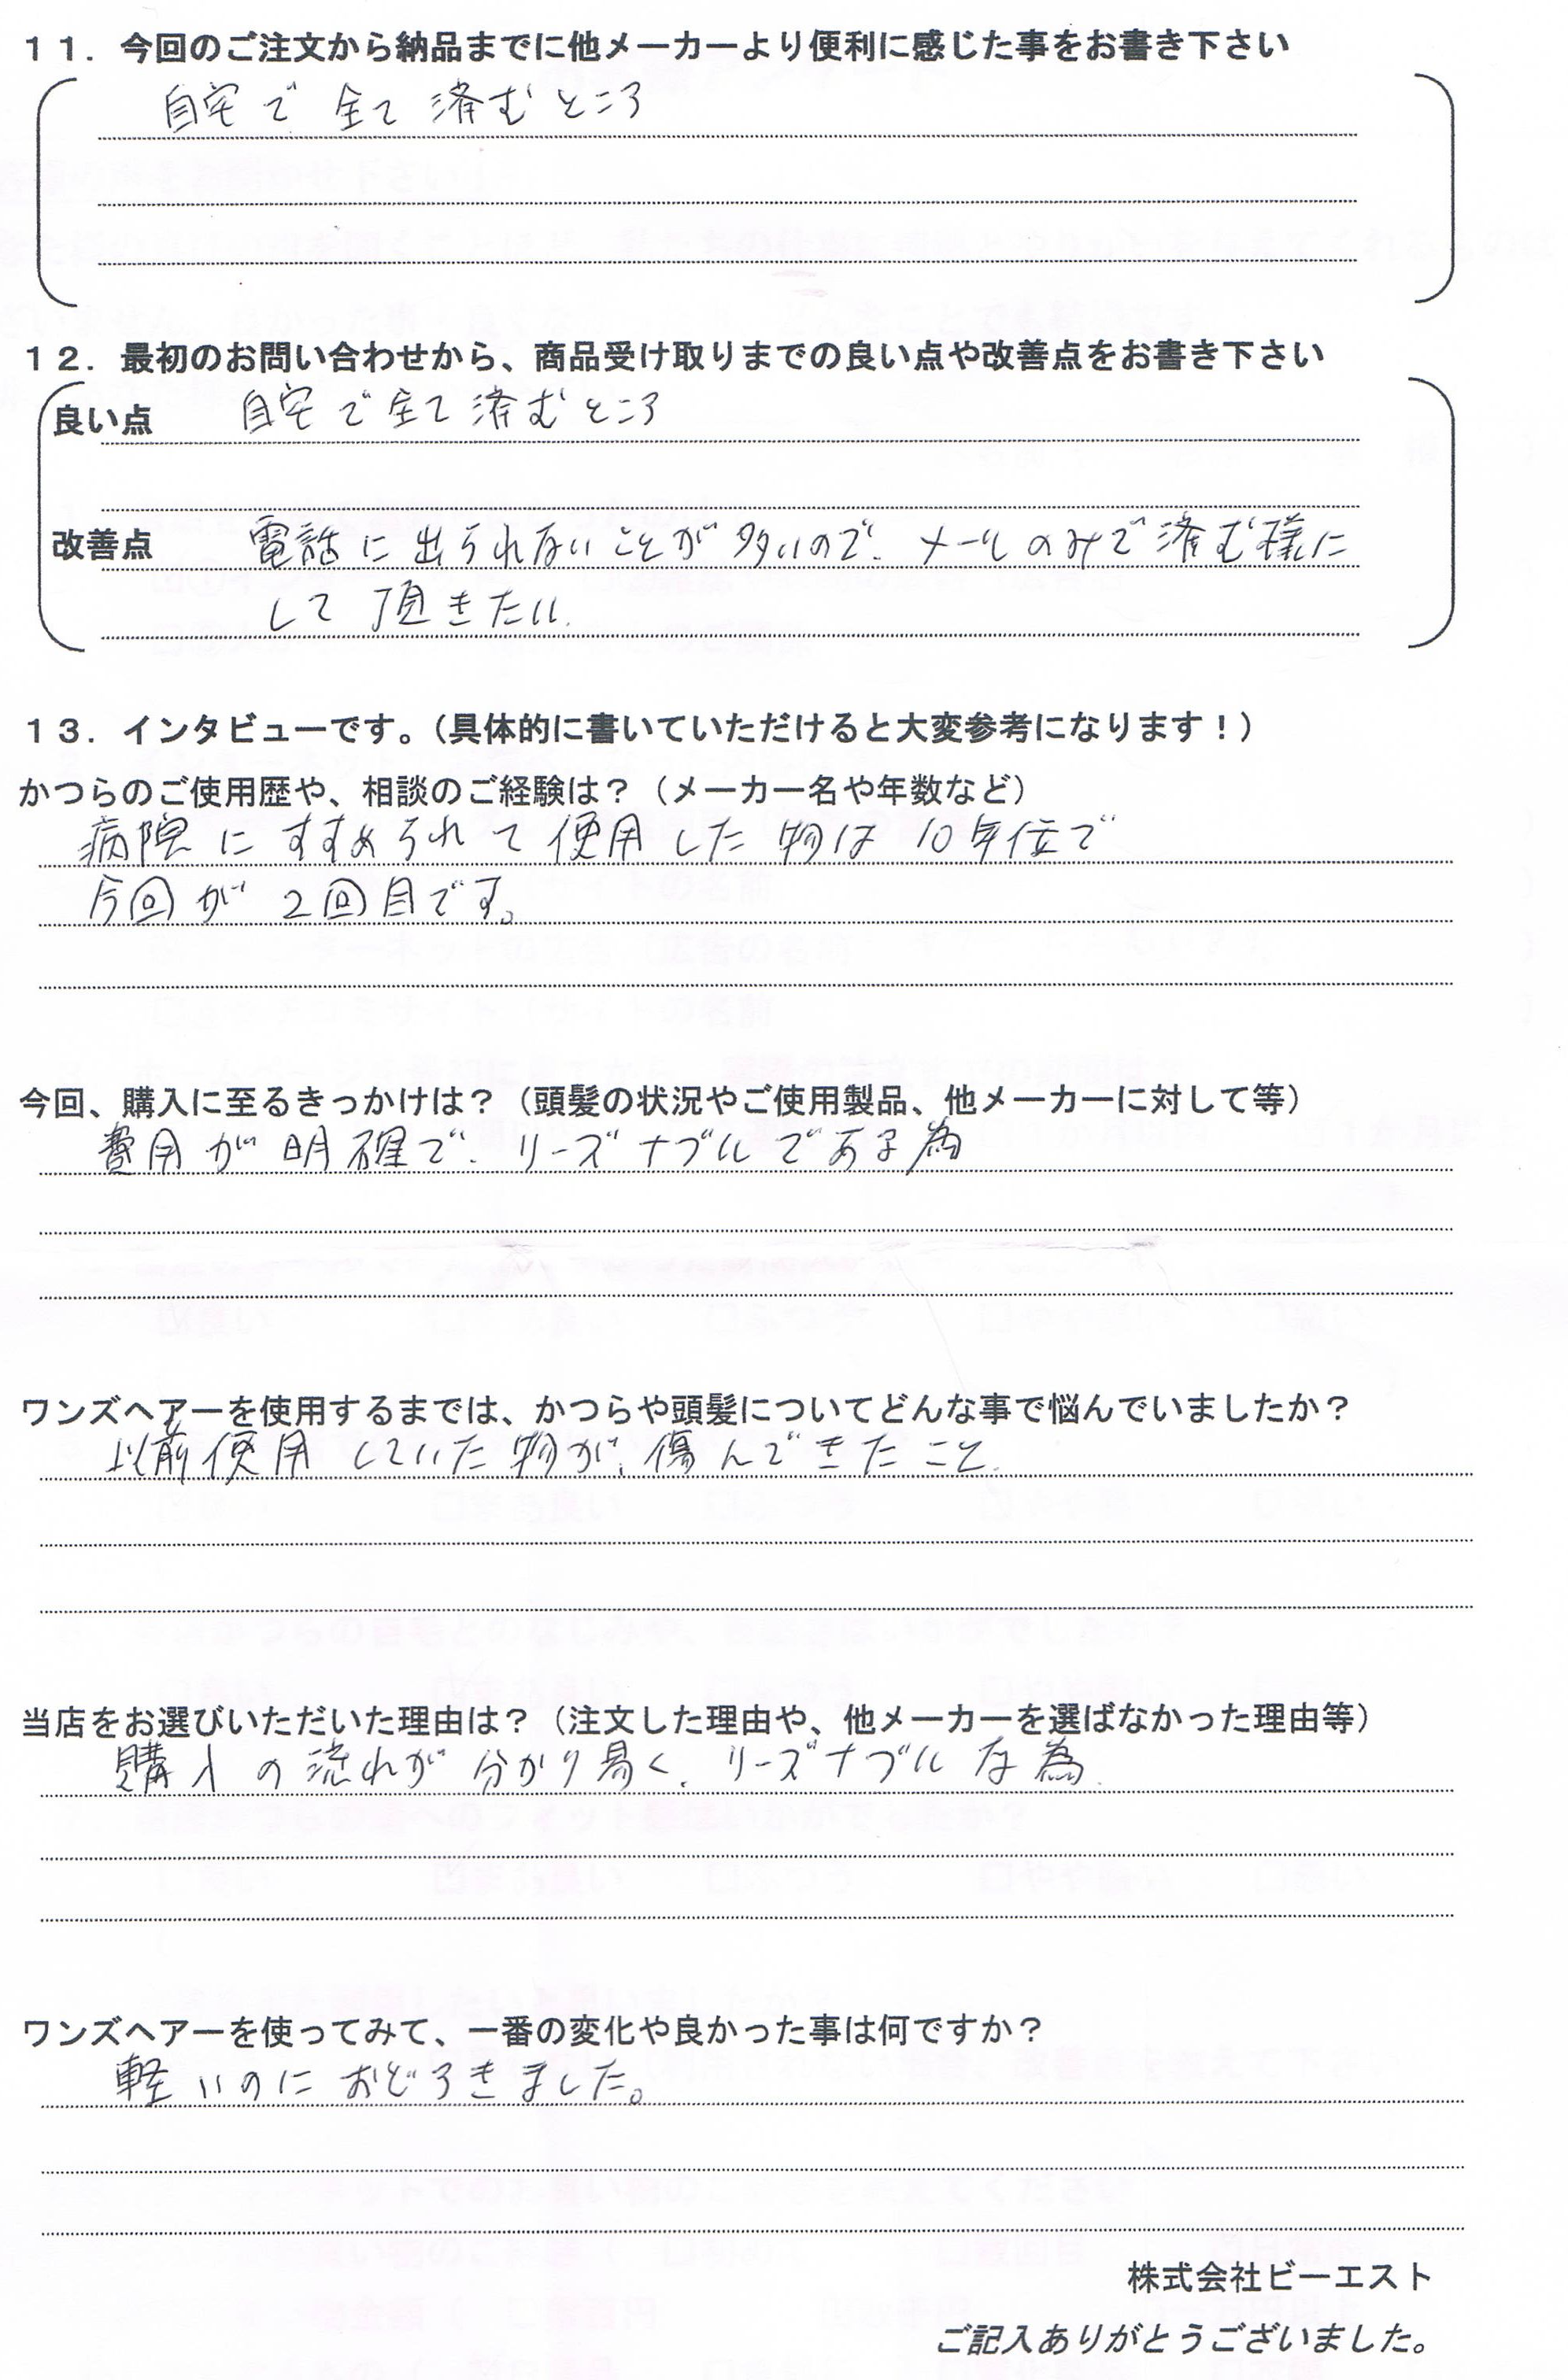 １１．今回のご注文から納品までに他メーカーより便利に感じた事をお書き下さい
自宅で全て済むところ
１２．最初のお問い合わせから、商品受け取りまでの良い点や改善点をお書き下さい
良い点　自宅で全て済むところ
改善点　電話に出られないことが多いので、メールのみで済む様に
して頂きたい。
１３．インタビューです。（具体的に書いていただけると大変参考になります！）
かつらのご使用歴や、相談のご経験は？（メーカー名や年数など）
病院にすすめられて使用した物は10年位で
今回が2回目です。
今回、購入に至るきっかけは？（頭髪の状況やご使用製品、他メーカーに対して等）
費用が明確で、リーズナブルである為
ワンズヘアーを使用するまでは、かつらや頭髪についてどんな事で悩んでいましたか？
以前使用していた物が、傷んできたこと。
当店をお選びいただいた理由は？（注文した理由や、他メーカーを選ばなかった理由等）
購入の流れが分かり易く、リーズナブルな為。
ワンズヘアーを使ってみて、一番の変化や良かった事は何ですか？
軽いのにおどろきました。
株式会社ビーエスト
ご記入ありがとうございました。